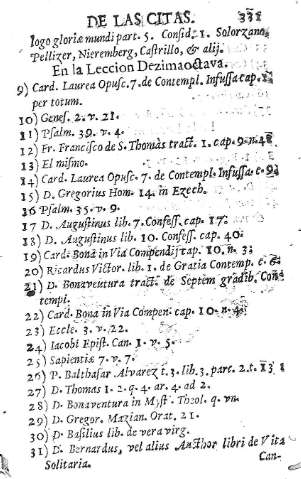 DE LAS CITAS. 331
logo gloriæ mundi part. 5. Consid. 1. Solorzano,
Pellizer, Nieremberg, Castrillo, & alij.
En la Leccion Dezimaoctava.
9) Card. Laurea Opusc. 7. de Contempl. Infussa cap.
per totum.
10) Genes. 2. v. 21.
11) Psalm. 39. v. 4.
12) Fr. Francisco de S. Thomás tract. 1. cap. 9. n. 4
13) El mismo.
14) Card. Laurea Opusc. 7. de Contempl. Infussa. c. 9
15) D. Gregorius Hom. 14. in Ezech.
16 Psalm. 35. v. 9.
17 D. Augustinus lib. 7. Confess. cap. 17.
18) D. Augustinus lib. 10. Confess. cap. 40.
19) Card. Bona in Via Compendij cap. 10. n. 3.
20) Ricardus Victor. lib. 1. de Gratia Contemp. c. 6
21) D. Bonaventura tract. de Septem gradib. Con
tempi.
22) Card. Bona in Via Compen. cap. 10. n. 4.
23) Eccle. 3. v. 22.
24) Iacobi Epist. Can. 1. v. 5.
25) Sapientiæ 7. v. 7.
26) P. Balthasar Alvarez t. 3. lib. 3. part. 2. t. 13
27) D. Thomas 1. 2. q. 4. ar. 4. ad 2.
28) D. Bonaventura in Myst. Theol. q. vn.
29) D. Gregor. Nazian. Orat. 21.
30) D. Basilius lib. de vera virg.
31) D. Bernardus, vel alius Aucthor libri de Vita
Solitaria. Can-